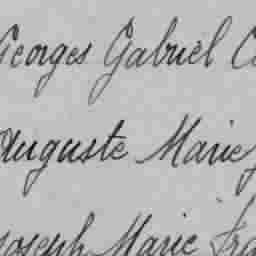 Georges Gabriel
Auguste Marie
Joseph Marie